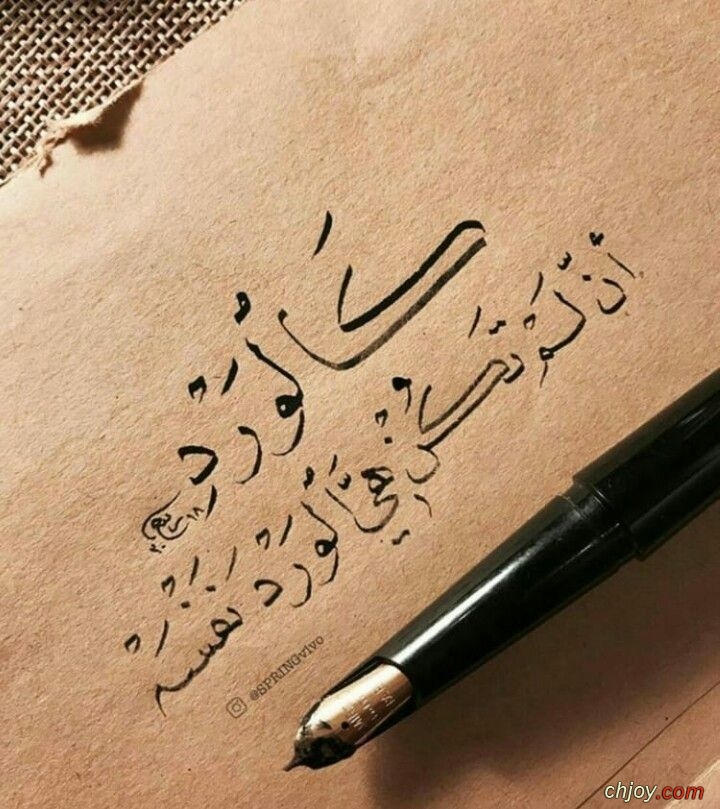 كَالوَرْدِ
أن لَّم تَكُنْ هِيَ الوَرْد نَفْسَهْ
@SPRINGvivo
chjoy.com